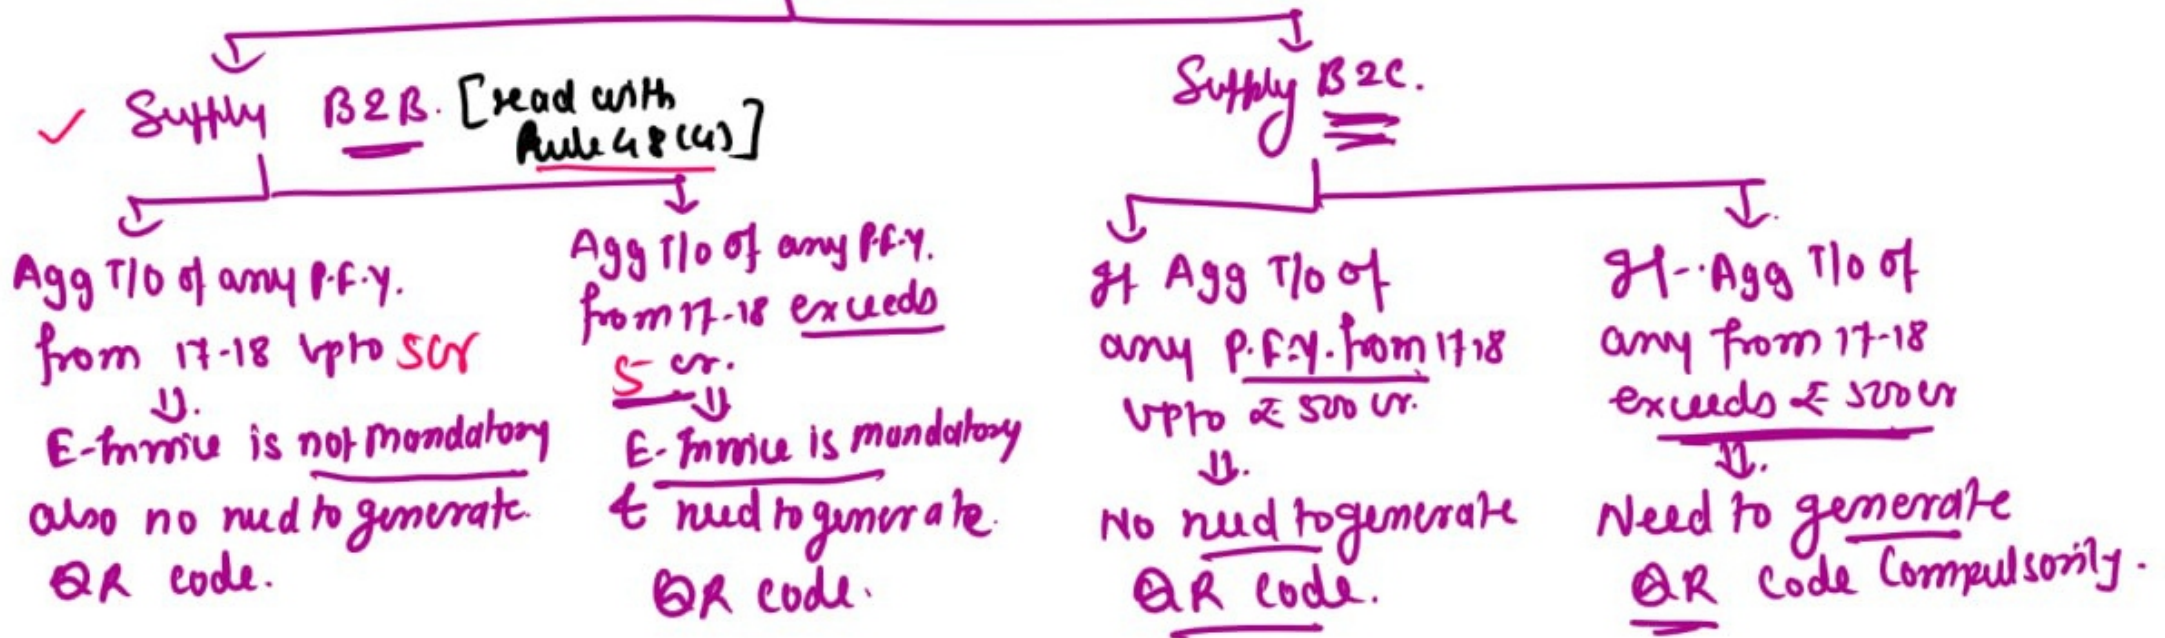 Supply B2B. [read with
Rule 48(4)]
Agg T/O of any P.F.Y.
from 17-18 upto 5cr
E-Invoice is not mandatory
also no need to generate
QR code.
Agg T/O of any P.F.Y.
from 17-18 exceeds
5 cr.
E-Invoice is mandatory
& need to generate.
QR code.
Supply B2C.
If Agg T/O of
any P.F.Y. from 17 18
upto ₹ 500 cr.
No need to generate
QR code.
If Agg T/O of
any from 17-18
exceeds ₹ 500 cr
Need to generate
QR code Compulsorily.